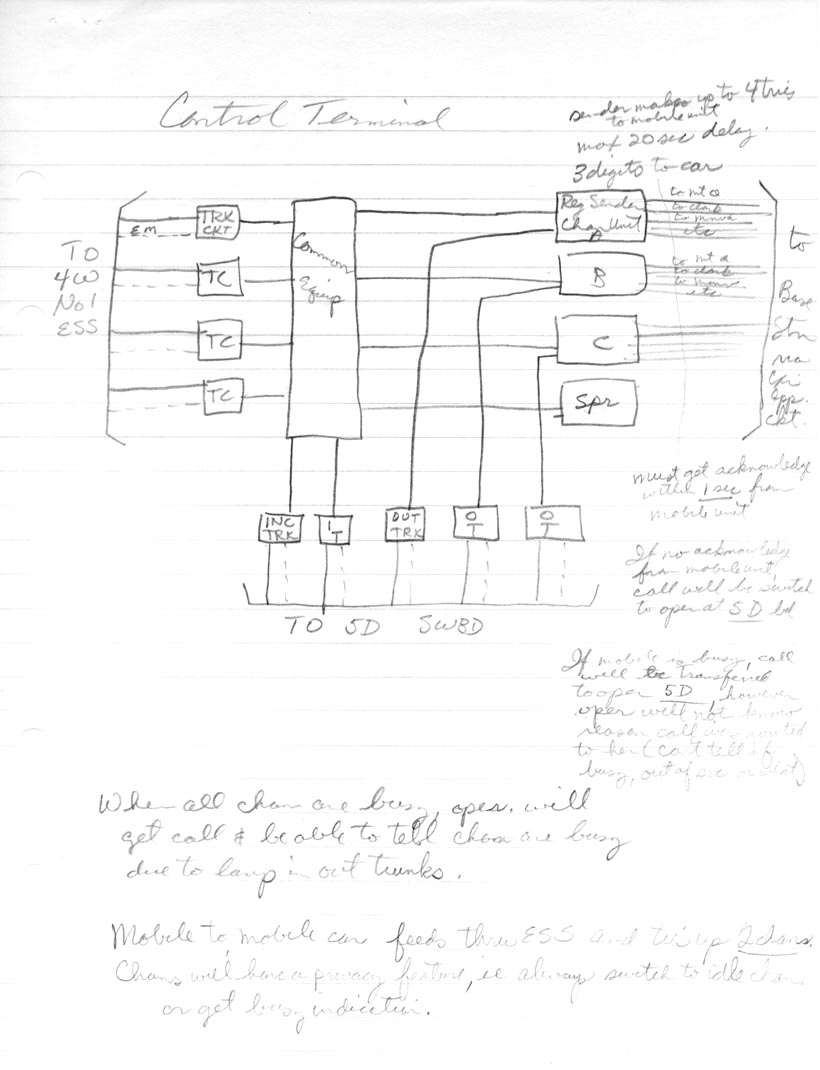 Control Terminal
sender makes up to 4 tries
to mobile unit
max 20 sec delay.
3 digits to car
TO
4W
No 1
ESS
EM
TRK
CKT
TC
TC
TC
Common
Equip
Reg Sender
Chan Unit
A
B
C
Spr
to mt Q
to clark
to
etc
to mt Q
to clark
to
etc
to
Base
Stn
via
ckt.
must get acknowledge
within 1 sec from
mobile unit
If no acknowledge
from mobile unit,
call will be switch
to oper at 5D bd
INC
TRK
I
T
OUT
TRK
O
T
O
T
TO 5D SWBD
If mobile is busy, call
will be transferred
to oper 5D, however
oper will not know
reason call was routed
to her (can't tell if
busy, out of svc or what)
When all chan are busy, oper. will
get call & be able to tell chan are busy
due to lamp in out trunks.
Mobile to mobile car feeds thru ESS and ties up 2 chans.
Chans will have a privacy feature, ie always switch to idle chan
or get busy indication.